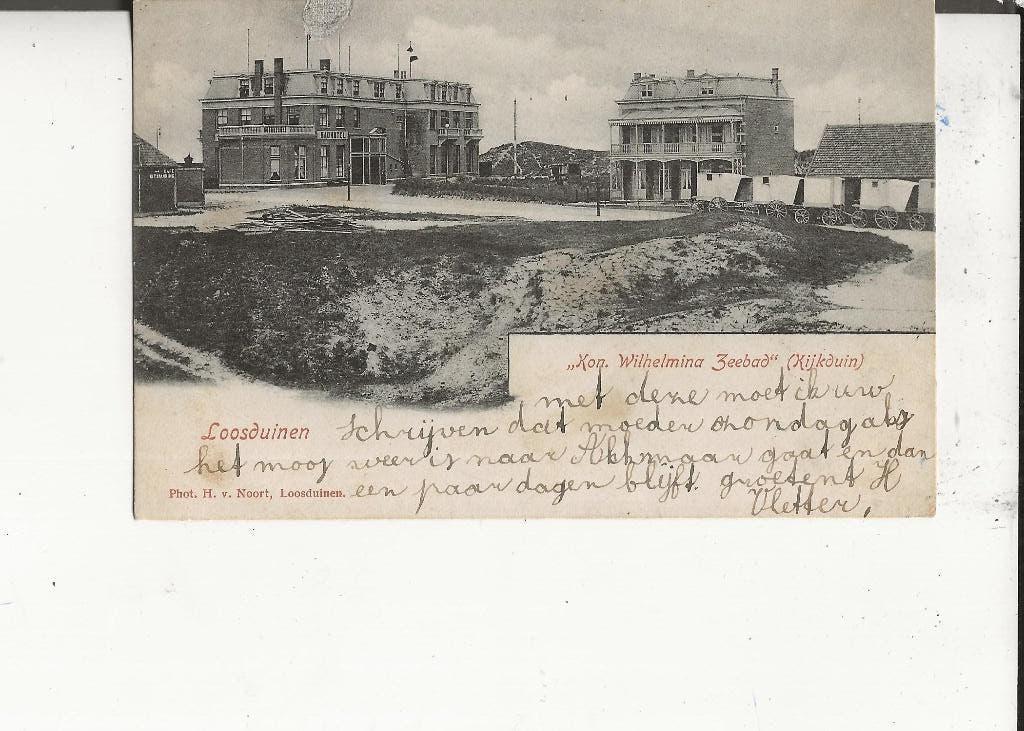 BADHOTEL
„Kon. Wilhelmina Zeebad“ (Kijkduin)
Loosduinen
met deze moet ik uw
schrijven dat moeder zondag als
het mooi weer is naar Alkmaar gaat en dan
een paar dagen blijft. groetent H
Vletter,
Phot. H. v. Noort, Loosduinen.